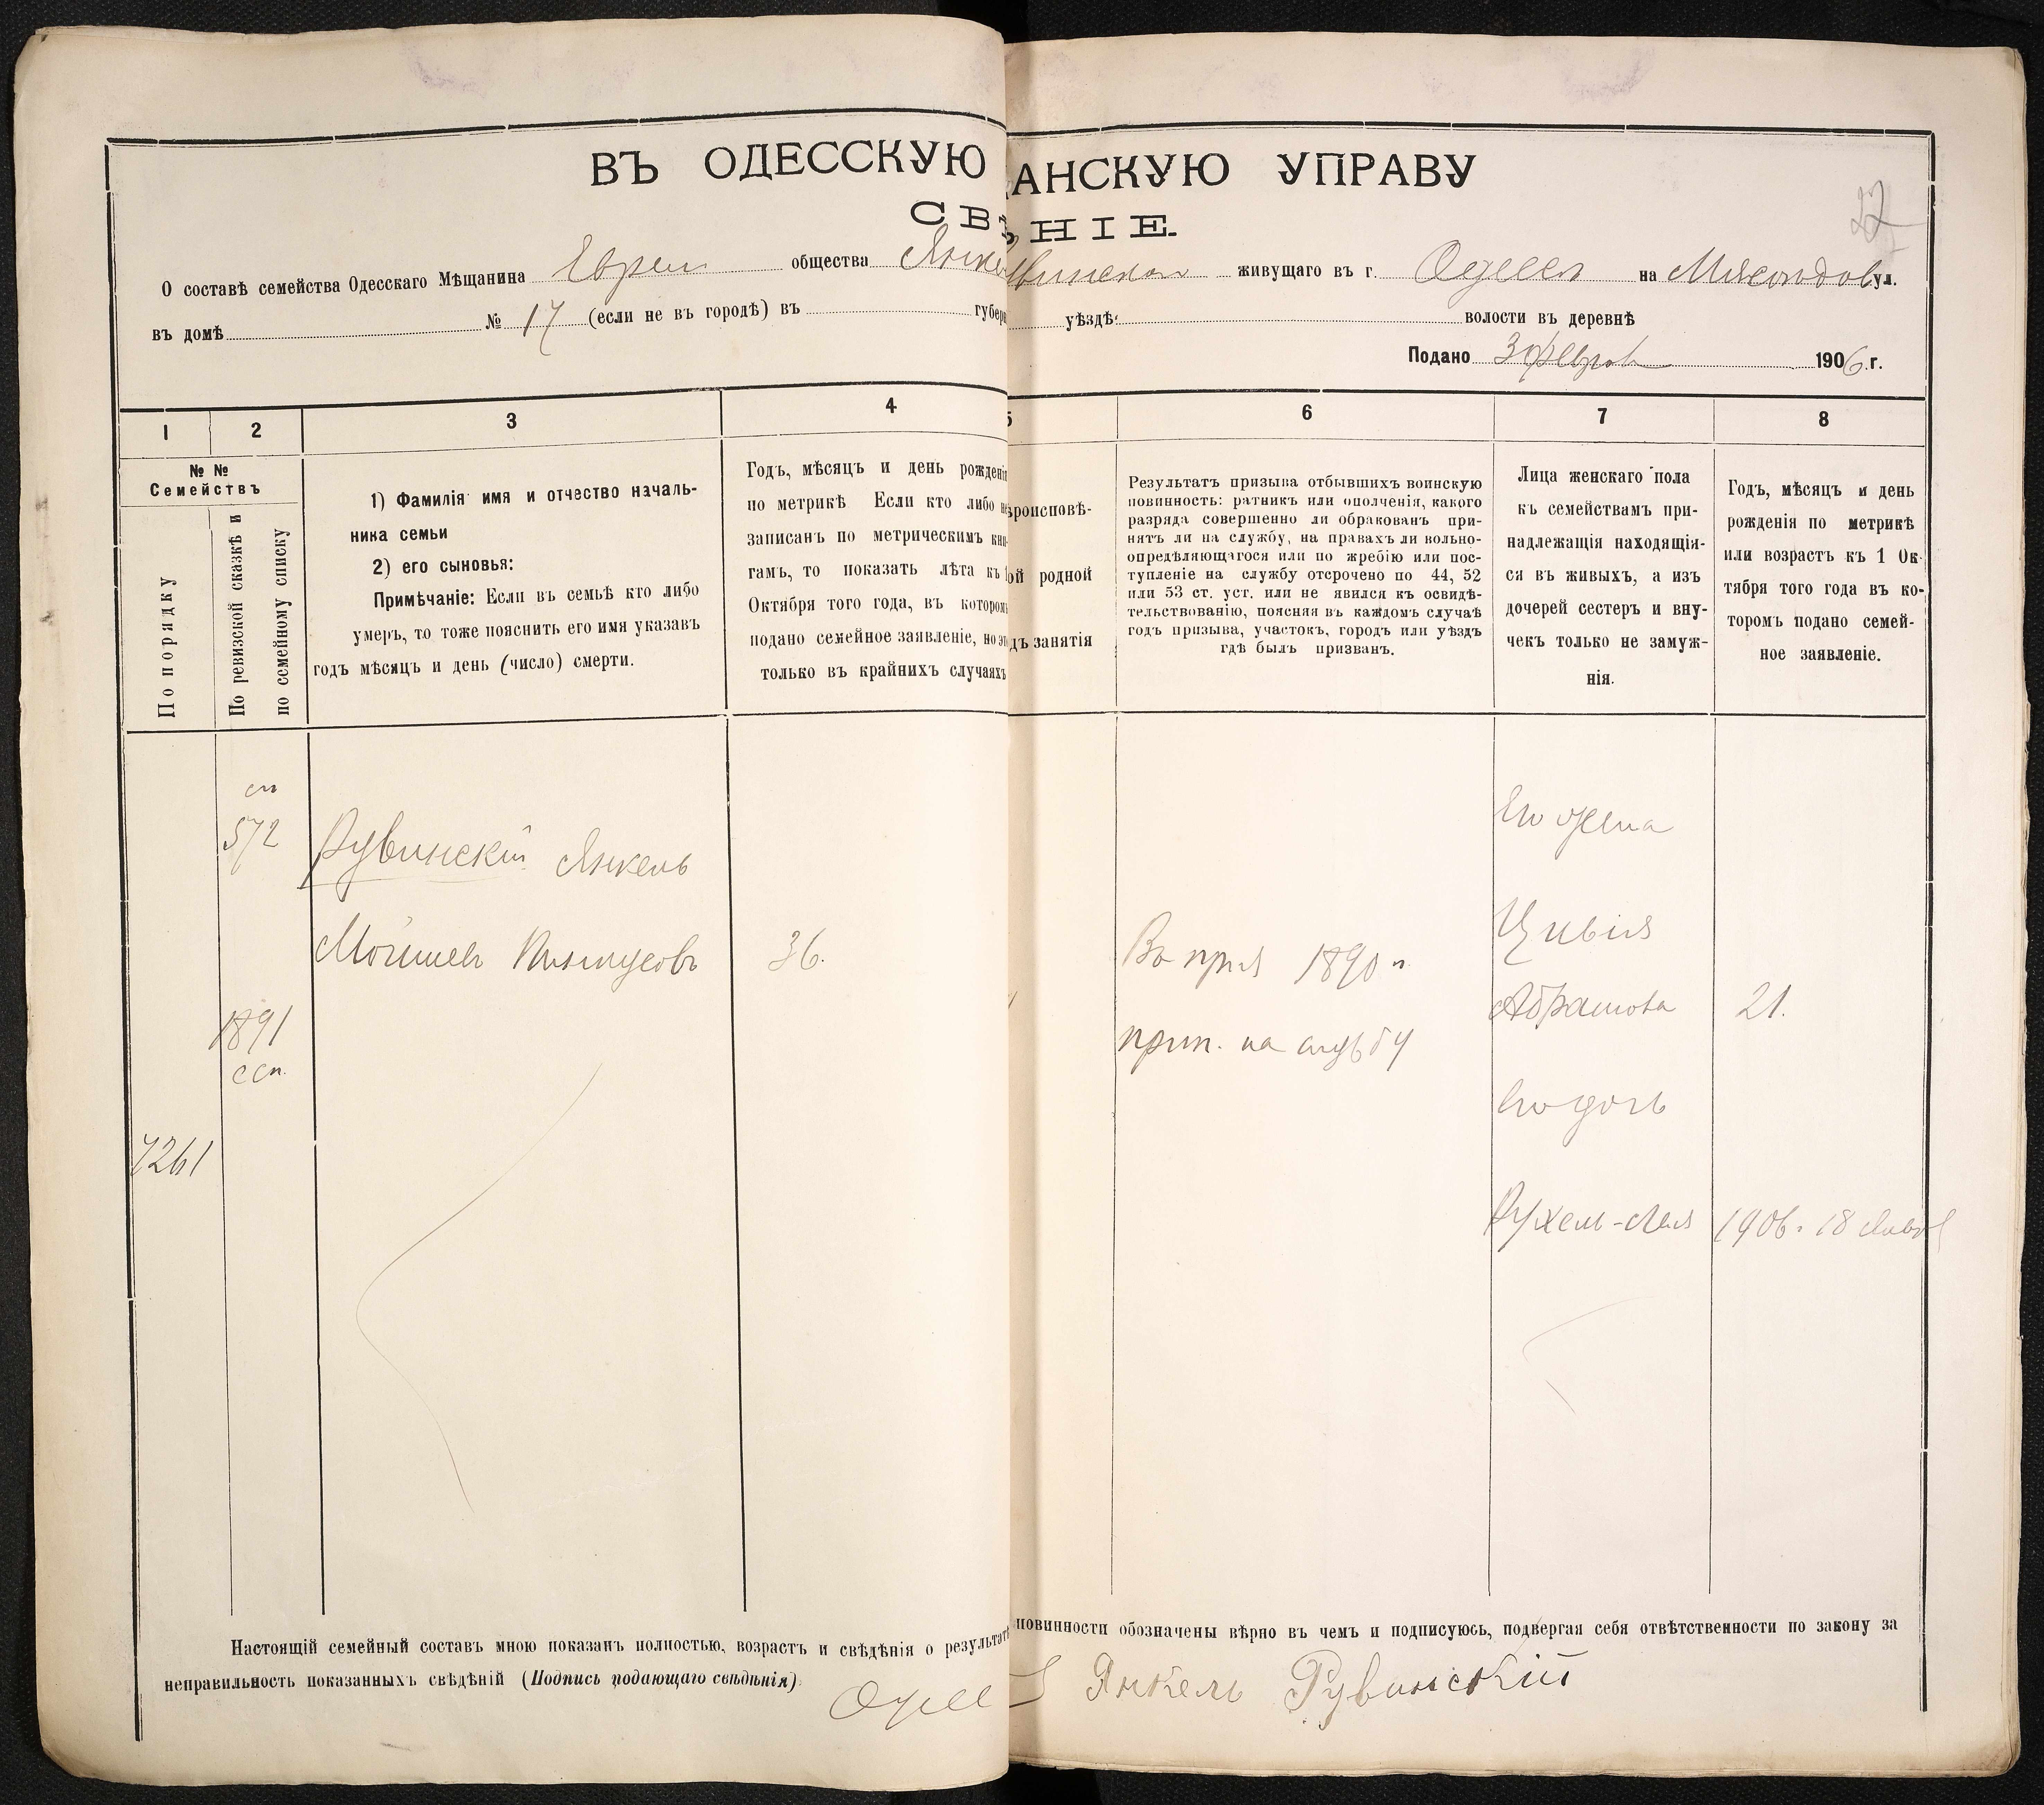 ВЪ ОДЕССКУЮ АНСКУЮ УПРАВУ
СВѢНІЕ.
27
О составѣ семейства Одесскаго Мѣщанина Евреи общества Янке винскаго живущаго въ г. Одессѣ на Мясоѣдов ул.
въ домѣ № 17 (если не въ городѣ) въ губер уѣздѣ волости въ деревнѣ
Подано 3 Феврал 1906 г.
1 2 3 4 5 6 7 8
№ №
Семействъ
По порядку
По ревизской сказкѣ и
по семейному списку
1) Фамилія имя и отчество началь-
ника семьи
2) его сыновья:
Примѣчаніе: Если въ семьѣ кто либо
умеръ, то тоже пояснить его имя указавъ
годъ мѣсяцъ и день (число) смерти.
Годъ, мѣсяцъ и день рожденія
по метрикѣ Если кто либо не
записанъ по метрическимъ кни-
гамъ, то показать лѣта къ 1
Октября того года, въ котором
подано семейное заявленіе, но э
только въ крайнихъ случаяхъ
роисповѣ-
ой родной
дъ занятія
Результатъ призыва отбывшихъ воинскую
повинность: ратникъ или ополченія, какого
разряда совершенно ли обракованъ при-
нятъ ли на службу, на правахъ ли вольно-
опредѣляющагося или по жребію или пос-
тупленіе на службу отсрочено по 44, 52
или 53 ст. уст. или не явился къ освидѣ-
тельствованію, поясняя въ каждомъ случаѣ
годъ призыва, участокъ, городъ или уѣздъ
гдѣ былъ призванъ.
Лица женскаго пола
къ семействамъ при-
надлежащія находящія-
ся въ живыхъ, а изъ
дочерей сестеръ и вну-
чекъ только не замуж-
нія.
Годъ, мѣсяцъ и день
рожденія по метрикѣ
или возрастъ къ 1 Ок-
тября того года въ ко-
торомъ подано семей-
ное заявленіе.
сп
572
Рувинскій Янкель
Мойшевъ Пинкусовъ
36.
1891
ссп.
7261
Въ приз 1890 г.
прин. на службу
Его жена
Цивія
Абрамова
21.
Его дочь
Рухель-Лея
1906 г. 18 Январ
Настоящій семейный составъ мною показанъ полностью, возрастъ и свѣдѣнія о результат повинности обозначены вѣрно въ чемъ и подписуюсь, подвергая себя отвѣтственности по закону за
неправильность показанныхъ свѣдѣній (Подпись подающаго свѣдѣнія)
Янкель Рувинскій